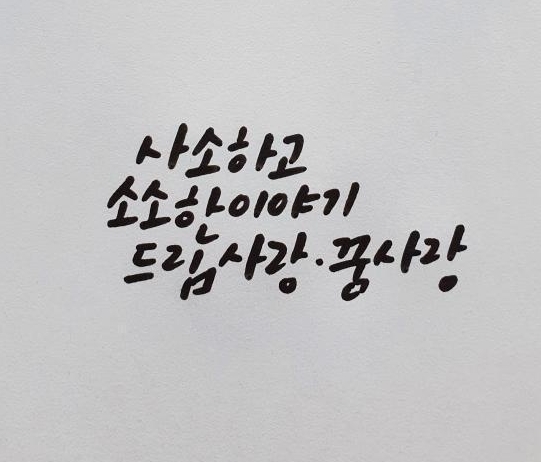 사소하고
소소한이야기
드림사랑·쭝사랑